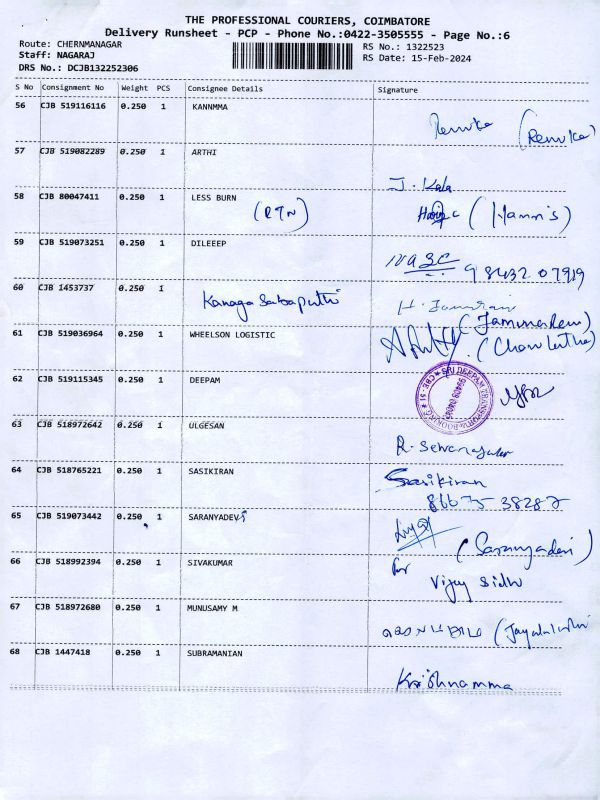 THE PROFESSIONAL COURIERS, COIMBATORE
Delivery Runsheet - PCP - Phone No.:0422-3505555 - Page No.:6
Route: CHERNMANAGAR
RS No.: 1322523
Staff: NAGARAJ
RS Date: 15-Feb-2024
DRS No.: DCJB132252306
S No Consignment No Weight PCS Consignee Details Signature
56 CJB 519116116 0.250 1 KANNMMA
Renuka (Renuka)
57 CJB 519082289 0.250 1 ARTHI
J. Kala
58 CJB 80047411 0.250 1 LESS BURN
(RTN) (Harris)
59 CJB 519073251 0.250 1 DILEEEP
98432 07919
60 CJB 1453737 0.250 1
Kanaga Sabapathi
61 CJB 519036964 0.250 1 WHEELSON LOGISTIC
62 CJB 519115345 0.250 1 DEEPAM
SRI DEEPAM TRANSPORT
63 CJB 518972642 0.250 1 ULGESAN
64 CJB 518765221 0.250 1 SASIKIRAN
Sasikiran
86675 38287
65 CJB 519073442 0.250 1 SARANYADEVi
(Saranyadevi)
66 CJB 518992394 0.250 1 SIVAKUMAR
for
Vijay Sidh
67 CJB 518972680 0.250 1 MUNUSAMY M
68 CJB 1447418 0.250 1 SUBRAMANIAN
Krishnamma